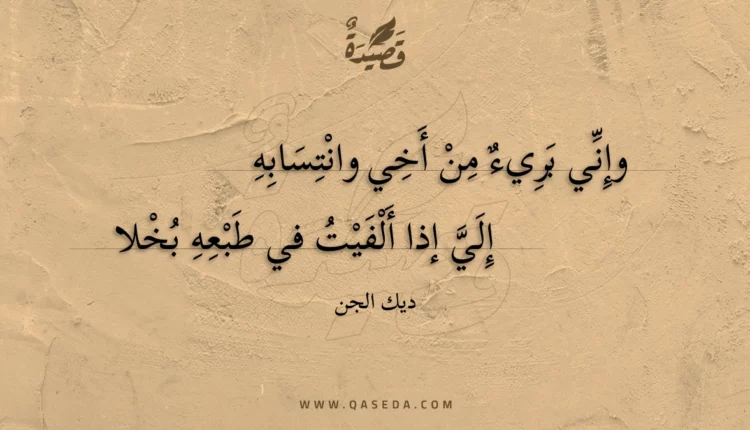 قَصِيدَةٌ
وإِنِّي بَرِيءٌ مِنْ أَخِي وانْتِسَابِهِ
إِلَيَّ إذا أَلْفَيْتُ في طَبْعِهِ بُخْلا
ديك الجن
WWW.QASEDA.COM